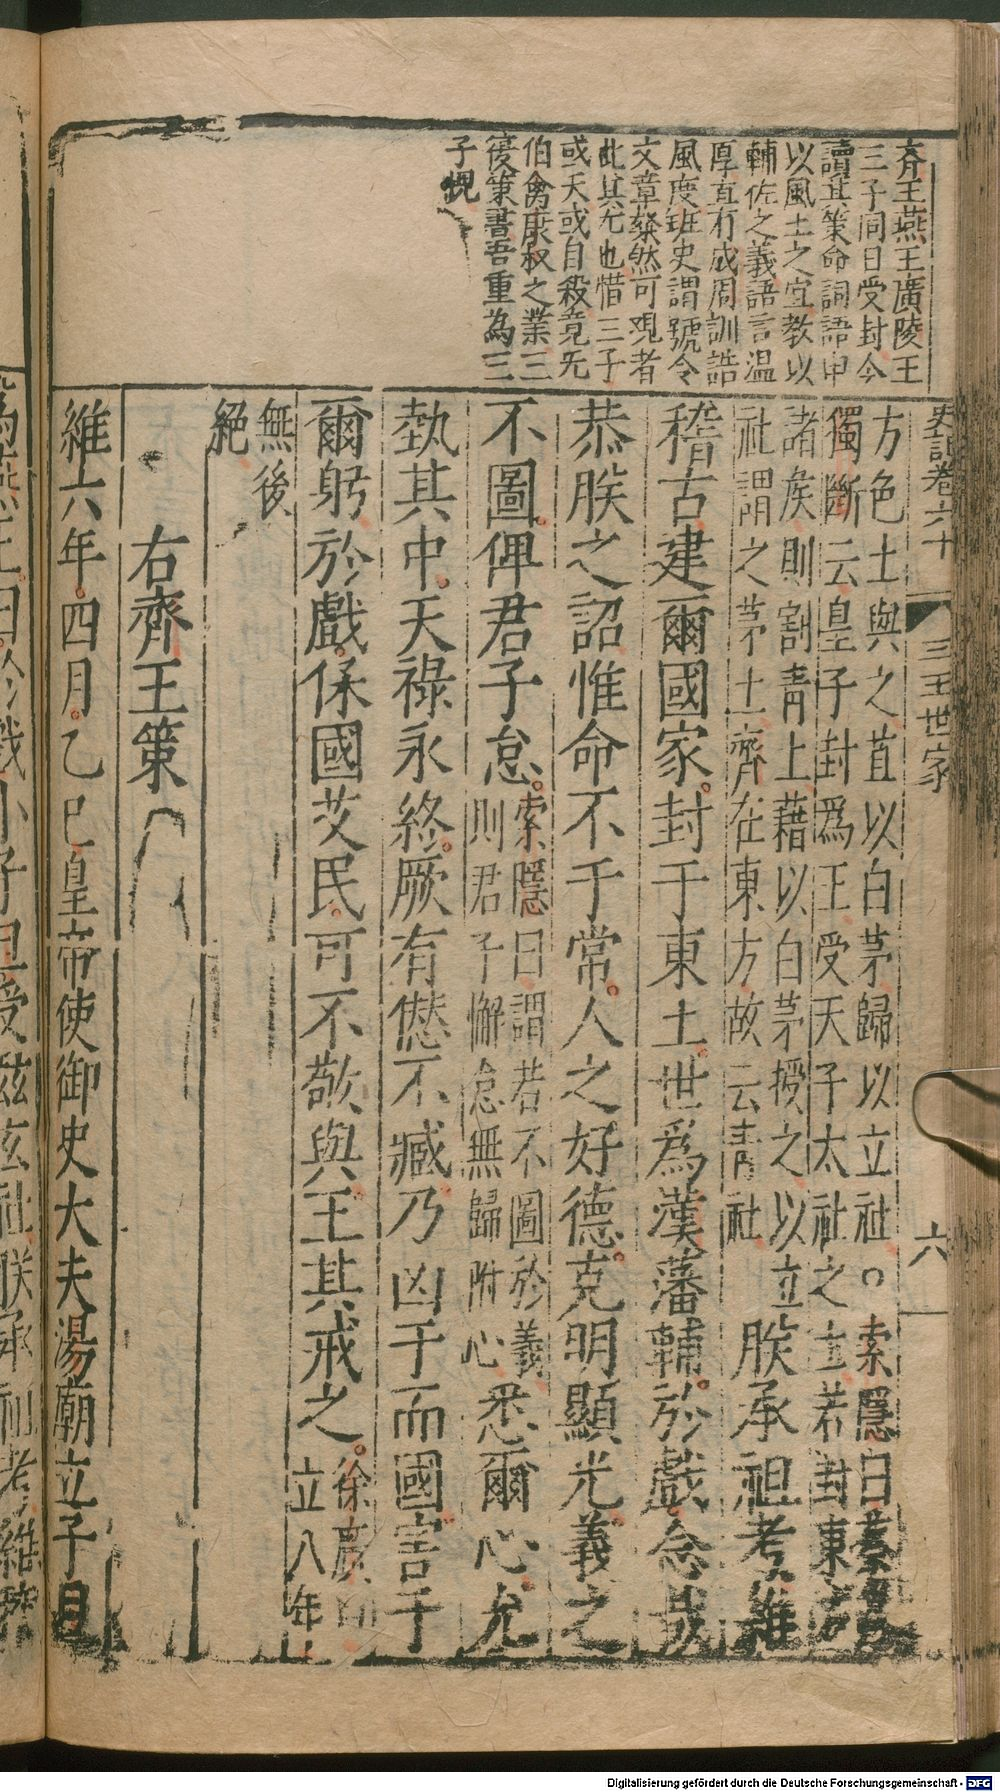 齊王燕王廣陵王
三子同日受封今
讀其策命詞語申
以風土之宜教以
輔佐之義語言溫
厚直有成周訓誥
風度班史謂號令
文章粲然可觀者
此其尤也惜三子
或夭或自殺竟无
伯禽康叔之業三
復策書吾重為三
子愧
史記卷六十
三王世家
六
方色土與之苴以白茅歸以立社○索隱曰蔡邕
獨斷云皇子封爲王受天子太社之土若封東方
諸侯則割青土藉以白茅授之以立
社謂之茅土齊在東方故云青社
朕承祖考維
稽古建爾國家封于東土世爲漢藩輔於戲念哉
恭朕之詔惟命不于常人之好德克明顯光義之
不圖俾君子怠
索隱曰謂若不圖於義
則君子懈怠無歸附心
悉爾心允
執其中天祿永終厥有愆不臧乃凶于而國害于
爾躬於戲保國艾民可不敬與王其戒之
徐廣曰
立八年
無後
絕
右齊王策
維六年四月乙巳皇帝使御史大夫湯廟立子旦
爲燕王曰於戲小子旦受茲玄社朕承祖考維稽
Digitalisierung gefördert durch die Deutsche Forschungsgemeinschaft - DFG